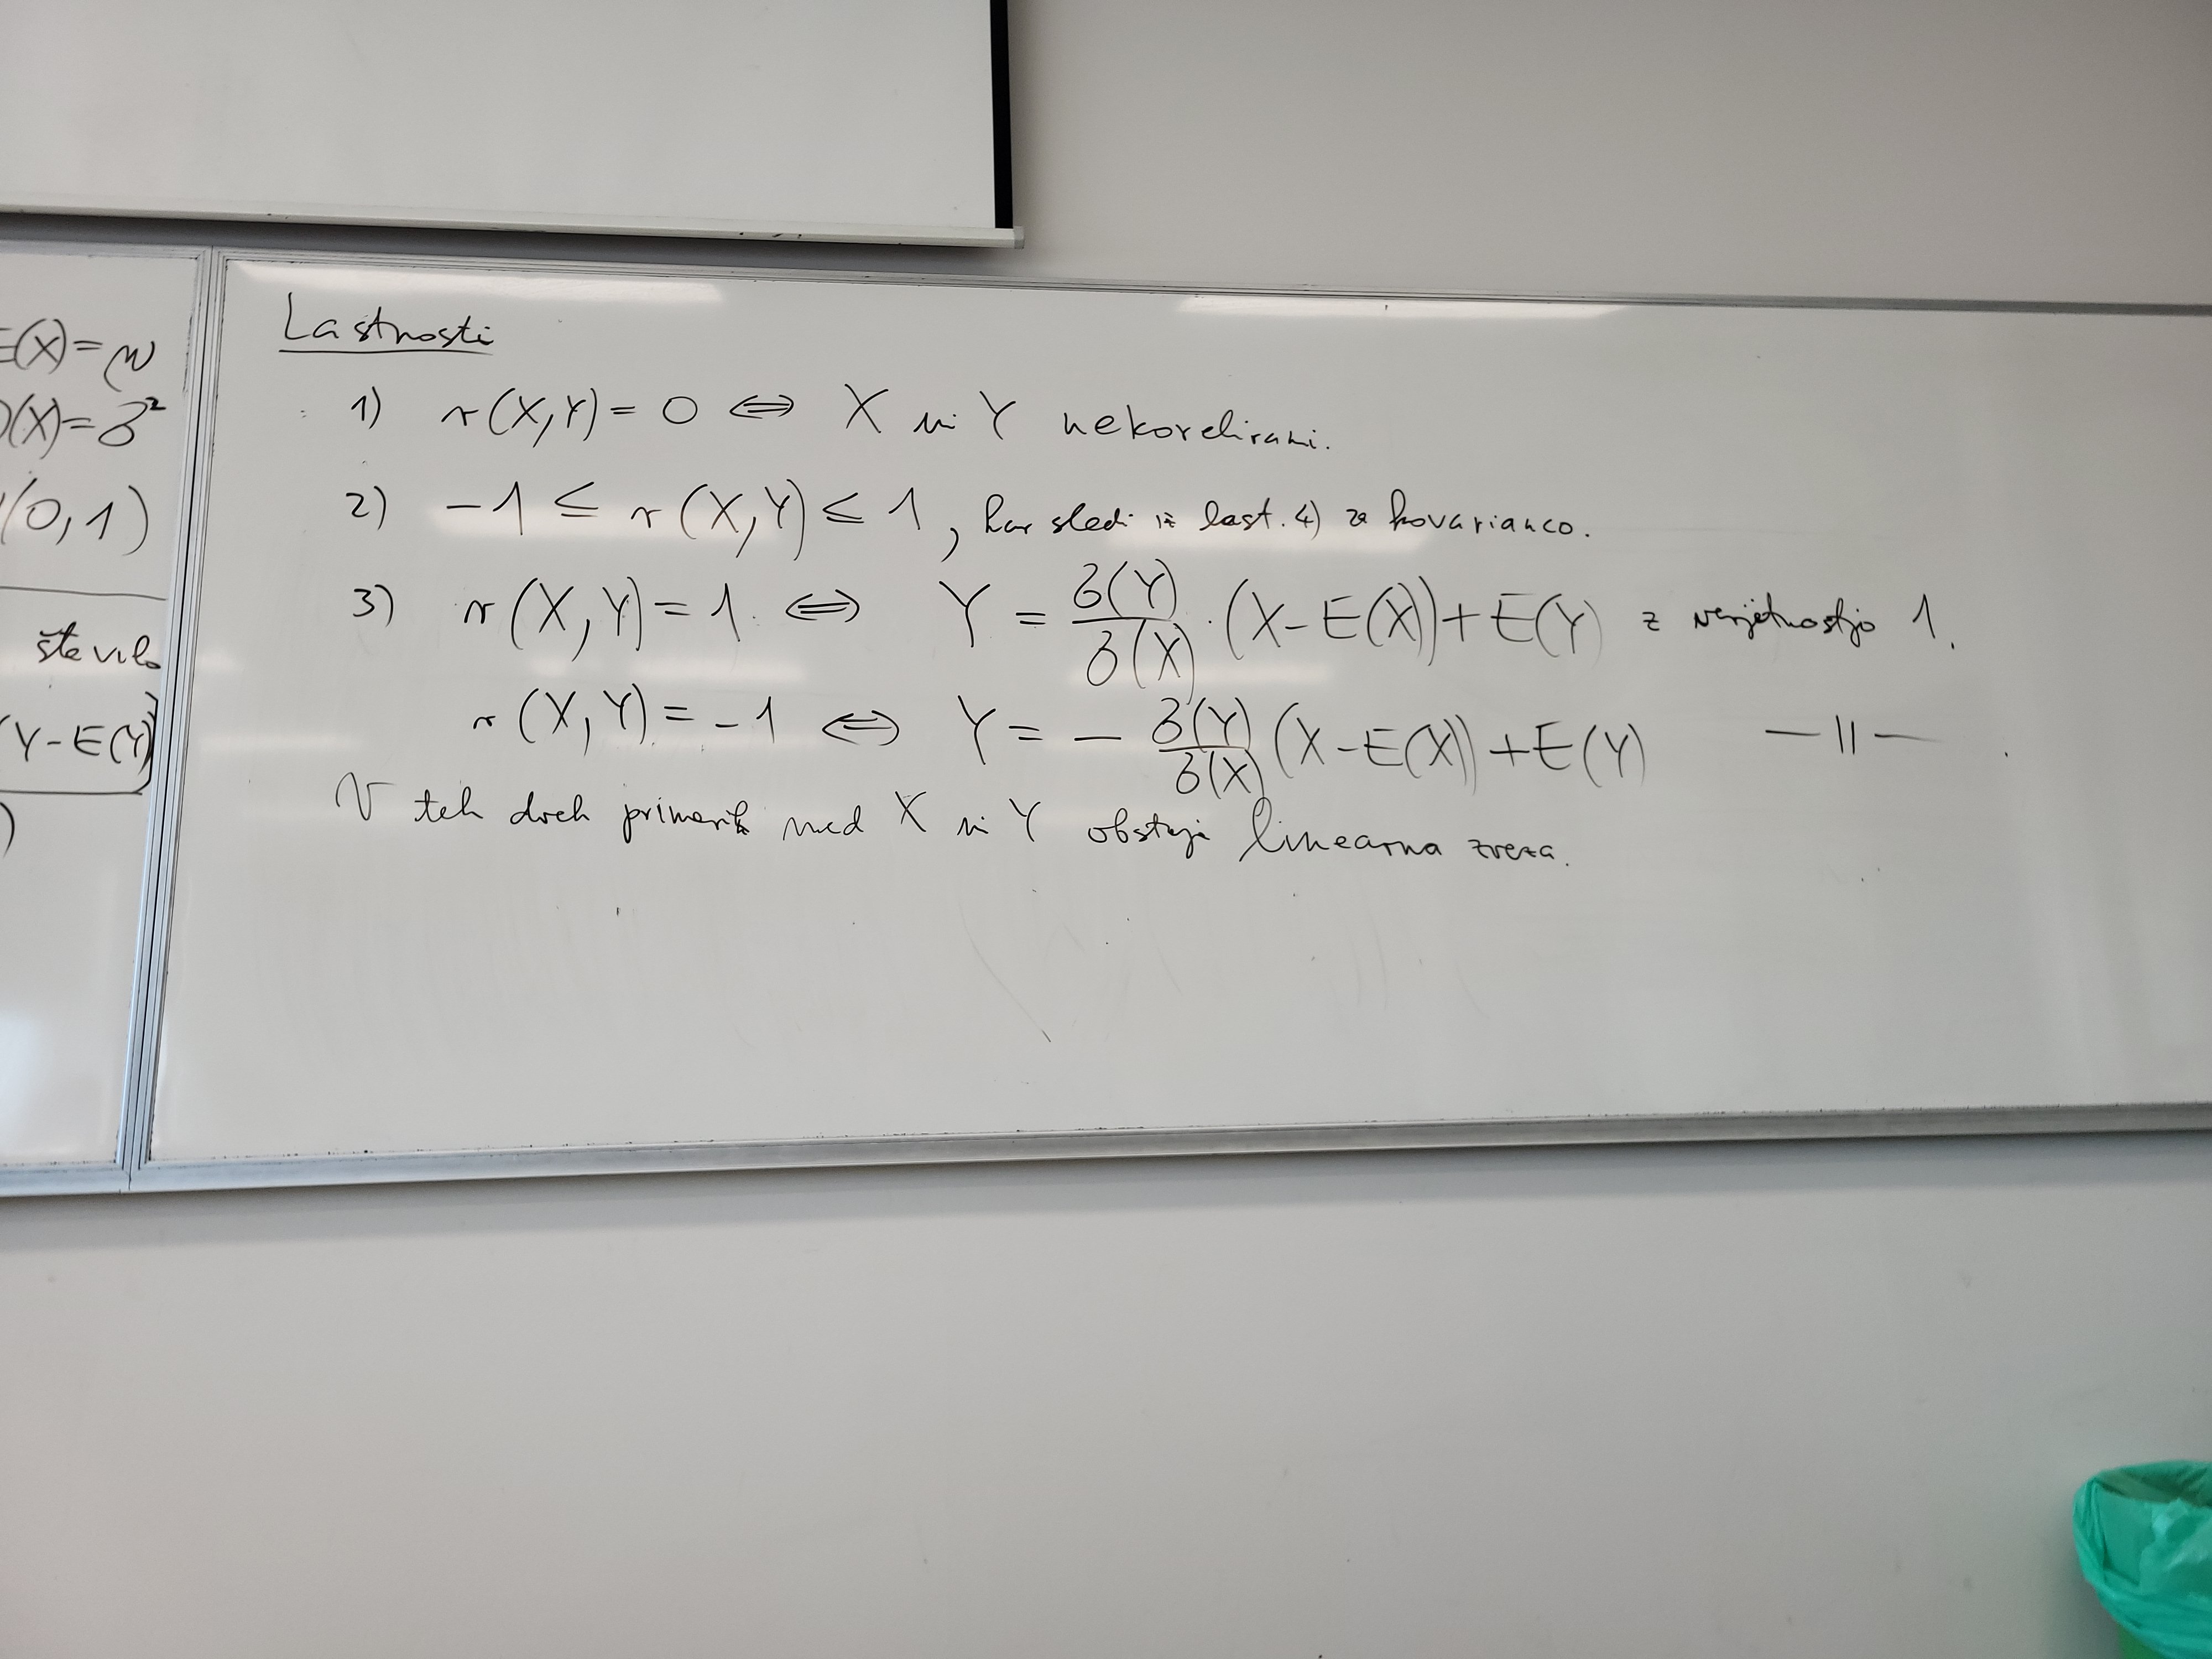 E(X) = μ
D(X) = σ²
(0, 1)
število
(Y - E(Y)
)
Lastnosti
1) r(X,Y) = 0 ⇔ X in Y nekorelirani.
2) -1 ≤ r(X,Y) ≤ 1, kar sledi iz last. 4) za kovarianco.
3) r(X,Y) = 1 ⇔ Y = σ(Y)/σ(X) · (X - E(X)) + E(Y) z verjetnostjo 1.
r(X,Y) = -1 ⇔ Y = - σ(Y)/σ(X) (X - E(X)) + E(Y) —||— .
V teh dveh primerih med X in Y obstaja linearna zveza.